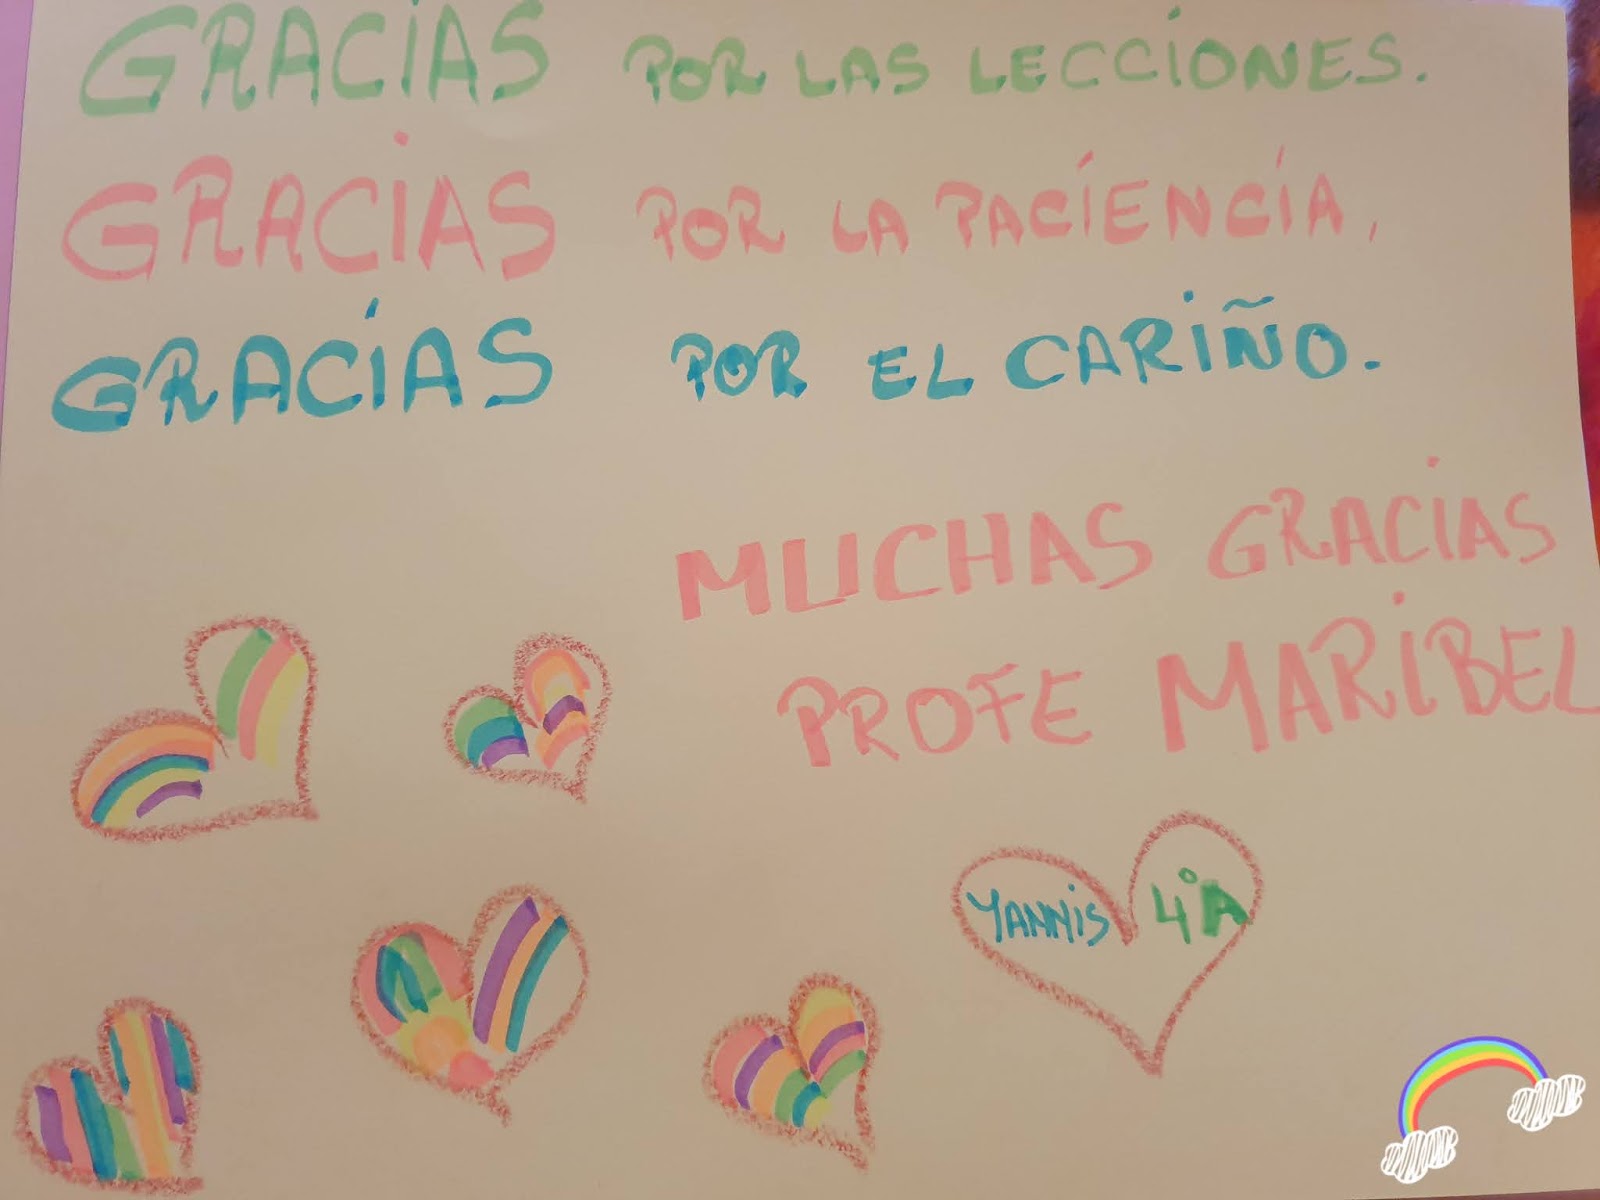 GRACIAS POR LAS LECCIONES.
GRACIAS POR LA PACIENCIA,
GRACIAS POR EL CARIÑO.
MUCHAS GRACIAS
PROFE MARIBEL
YANNIS 4ºA